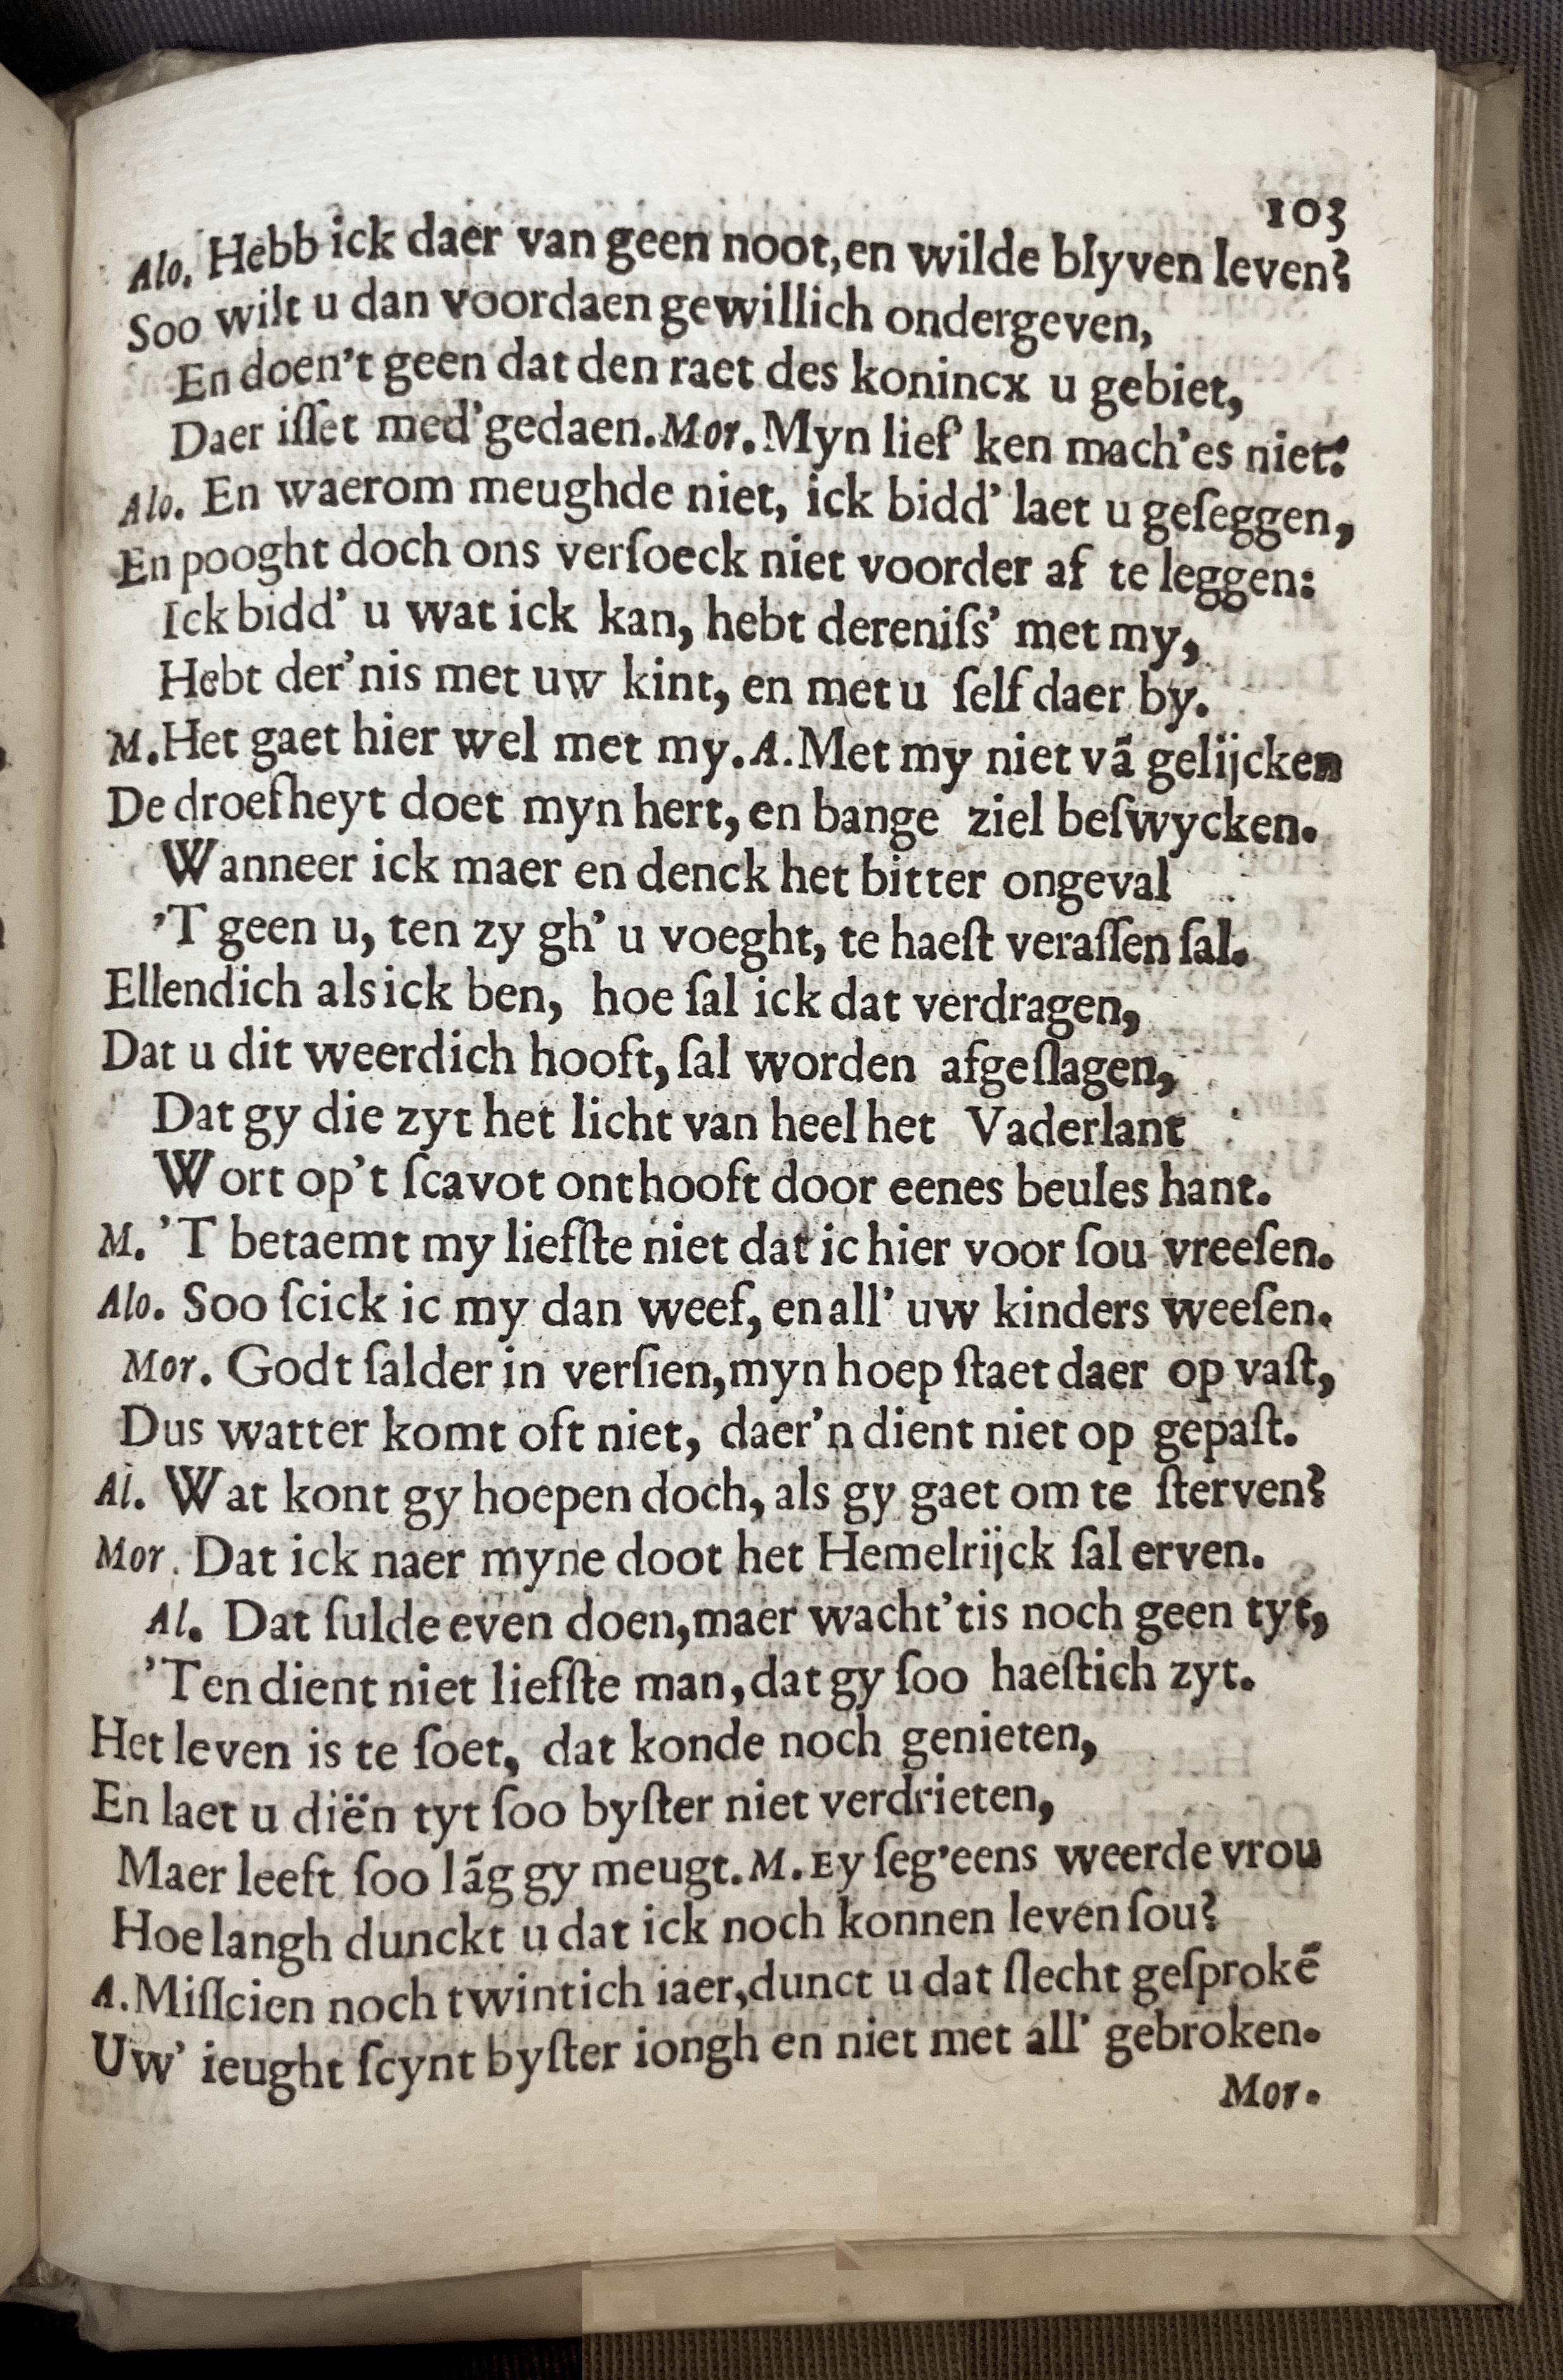 103
Alo. Hebb ick daer van geen noot, en wilde blyven leven?
Soo wilt u dan voordaen gewillich ondergeven,
En doen't geen dat den raet des konincx u gebiet,
Daer iſſet med'gedaen. Mor. Myn lief' ken mach'es niet:
Alo. En waerom meughde niet, ick bidd' laet u geſeggen,
En pooght doch ons verſoeck niet voorder af te leggen:
Ick bidd' u wat ick kan, hebt dereniſs' met my,
Hebt der'nis met uw kint, en met u ſelf daer by.
M. Het gaet hier wel met my. A. Met my niet vã gelijcken
De droefheyt doet myn hert, en bange ziel beſwycken.
Wanneer ick maer en denck het bitter ongeval
'T geen u, ten zy gh' u voeght, te haeſt veraſſen ſal.
Ellendich als ick ben, hoe ſal ick dat verdragen,
Dat u dit weerdich hooft, ſal worden afgeſlagen,
Dat gy die zyt het licht van heel het Vaderlant
Wort op't ſcavot onthooft door eenes beules hant.
M. 'T betaemt my liefſte niet dat ic hier voor ſou vreeſen.
Alo. Soo ſcick ic my dan weef, en all' uw kinders weeſen.
Mor. Godt ſalder in verſien, myn hoep ſtaet daer op vaſt,
Dus watter komt oft niet, daer'n dient niet op gepaſt.
Al. Wat kont gy hoepen doch, als gy gaet om te ſterven?
Mor. Dat ick naer myne doot het Hemelrijck ſal erven.
Al. Dat ſulde even doen, maer wacht'tis noch geen tyt,
'Ten dient niet liefſte man, dat gy ſoo haeſtich zyt.
Het leven is te ſoet, dat konde noch genieten,
En laet u diën tyt ſoo byſter niet verdrieten,
Maer leeft ſoo lãg gy meugt. M. Ey ſeg'eens weerde vrou
Hoe langh dunckt u dat ick noch konnen leven ſou?
A. Miſſcien noch twintich iaer, dunct u dat ſlecht geſprokẽ
Uw' ieught ſcynt byſter iongh en niet met all' gebroken.
Mor.